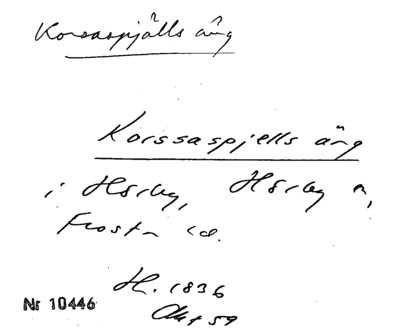 Korsaspjälls äng
Korssaspjells äng
i Hörby, Hörby s,
Frosta hd.
H. 1836
Akt 59
Nr 10446